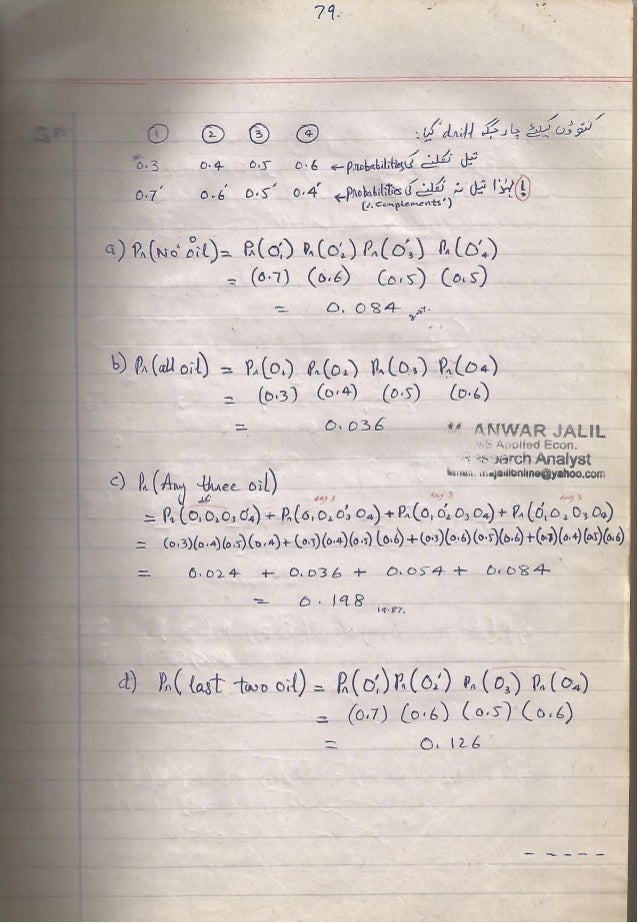 79.
کنوؤں کیلئے چار جگہ drill کیا:
① ② ③ ④
0.3 0.4 0.5 0.6 ← Probabilities تیل نکلنے کی
0.7' 0.6' 0.5' 0.4' ← Probabilities لہٰذا تیل نہ نکلنے کی
(i. Complements')
a) Pr(No oil) = Pr(O₁') Pr(O₂') Pr(O₃') Pr(O₄')
= (0.7) (0.6) (0.5) (0.5)
= 0.084
b) Pr(all oil) = Pr(O₁) Pr(O₂) Pr(O₃) Pr(O₄)
= (0.3) (0.4) (0.5) (0.6)
= 0.036
ANWAR JALIL
Applied Econ.
Analyst
c) Pr(Any three oil)
any 3 any 3 any 3
= Pr(O₁O₂O₃O₄') + Pr(O₁O₂O₃'O₄) + Pr(O₁O₂'O₃O₄) + Pr(O₁'O₂O₃O₄)
= (0.3)(0.4)(0.5)(0.4) + (0.3)(0.4)(0.5)(0.6) + (0.3)(0.6)(0.5)(0.6) + (0.7)(0.4)(0.5)(0.6)
= 0.024 + 0.036 + 0.054 + 0.084
= 0.198
d) Pr(last two oil) = Pr(O₁') Pr(O₂') Pr(O₃) Pr(O₄)
= (0.7) (0.6) (0.5) (0.6)
= 0.126
-----